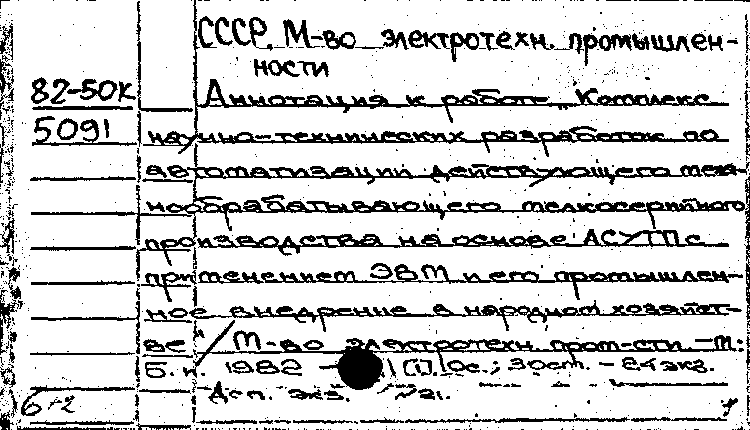 СССР. М-во электротехн. промышлен-
ности
82-50к Аннотация к работе „Комплекс
5091 научно-технических разработок по
автоматизации действующего меха-
нообрабатывающего мелкосерийного
производства на основе АСУТП с
применением ЭВМ и его промышлен-
ное внедрение в народном хозяйст-
ве" / М-во электротехн. пром-сти. - М.:
Б. и. 1982 - ; 30 - экз.
Деп. экз. №21.
6-2